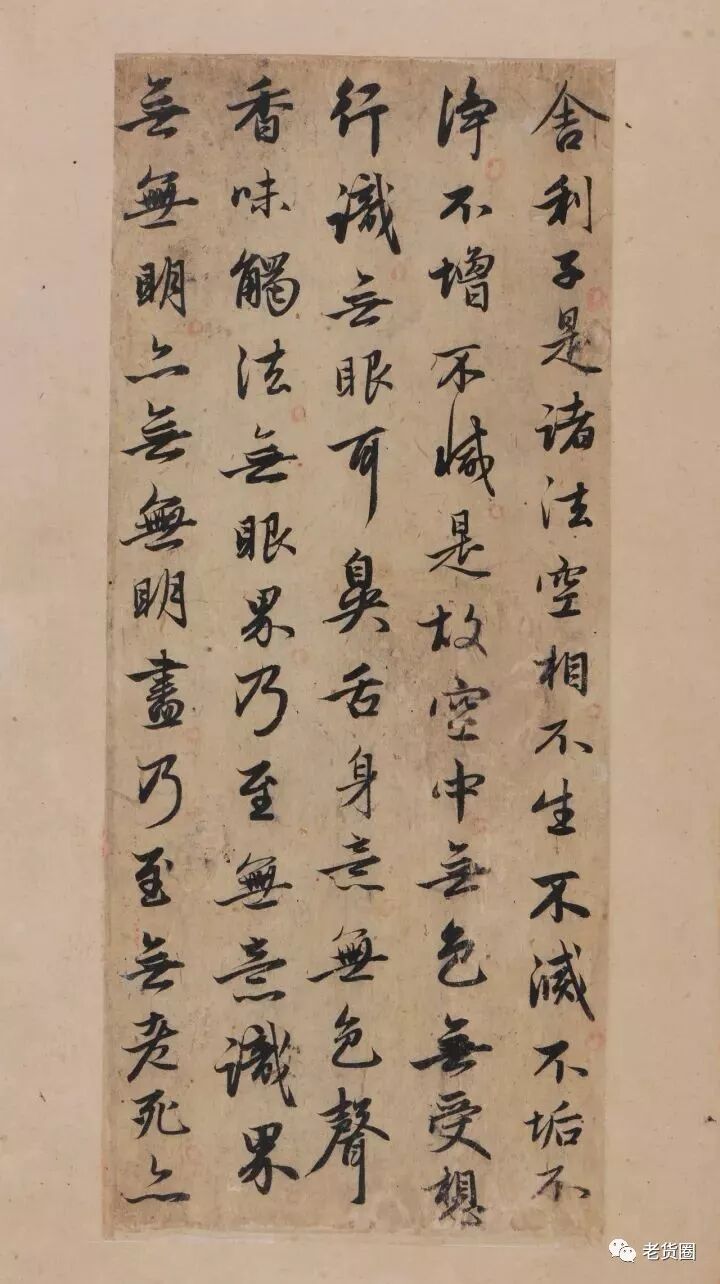 舍利子是諸法空相不生不滅不垢不
淨不增不減是故空中無色無受想
行識無眼耳鼻舌身意無色聲
香味觸法無眼界乃至無意識界
無無明亦無無明盡乃至無老死亦
老货圈